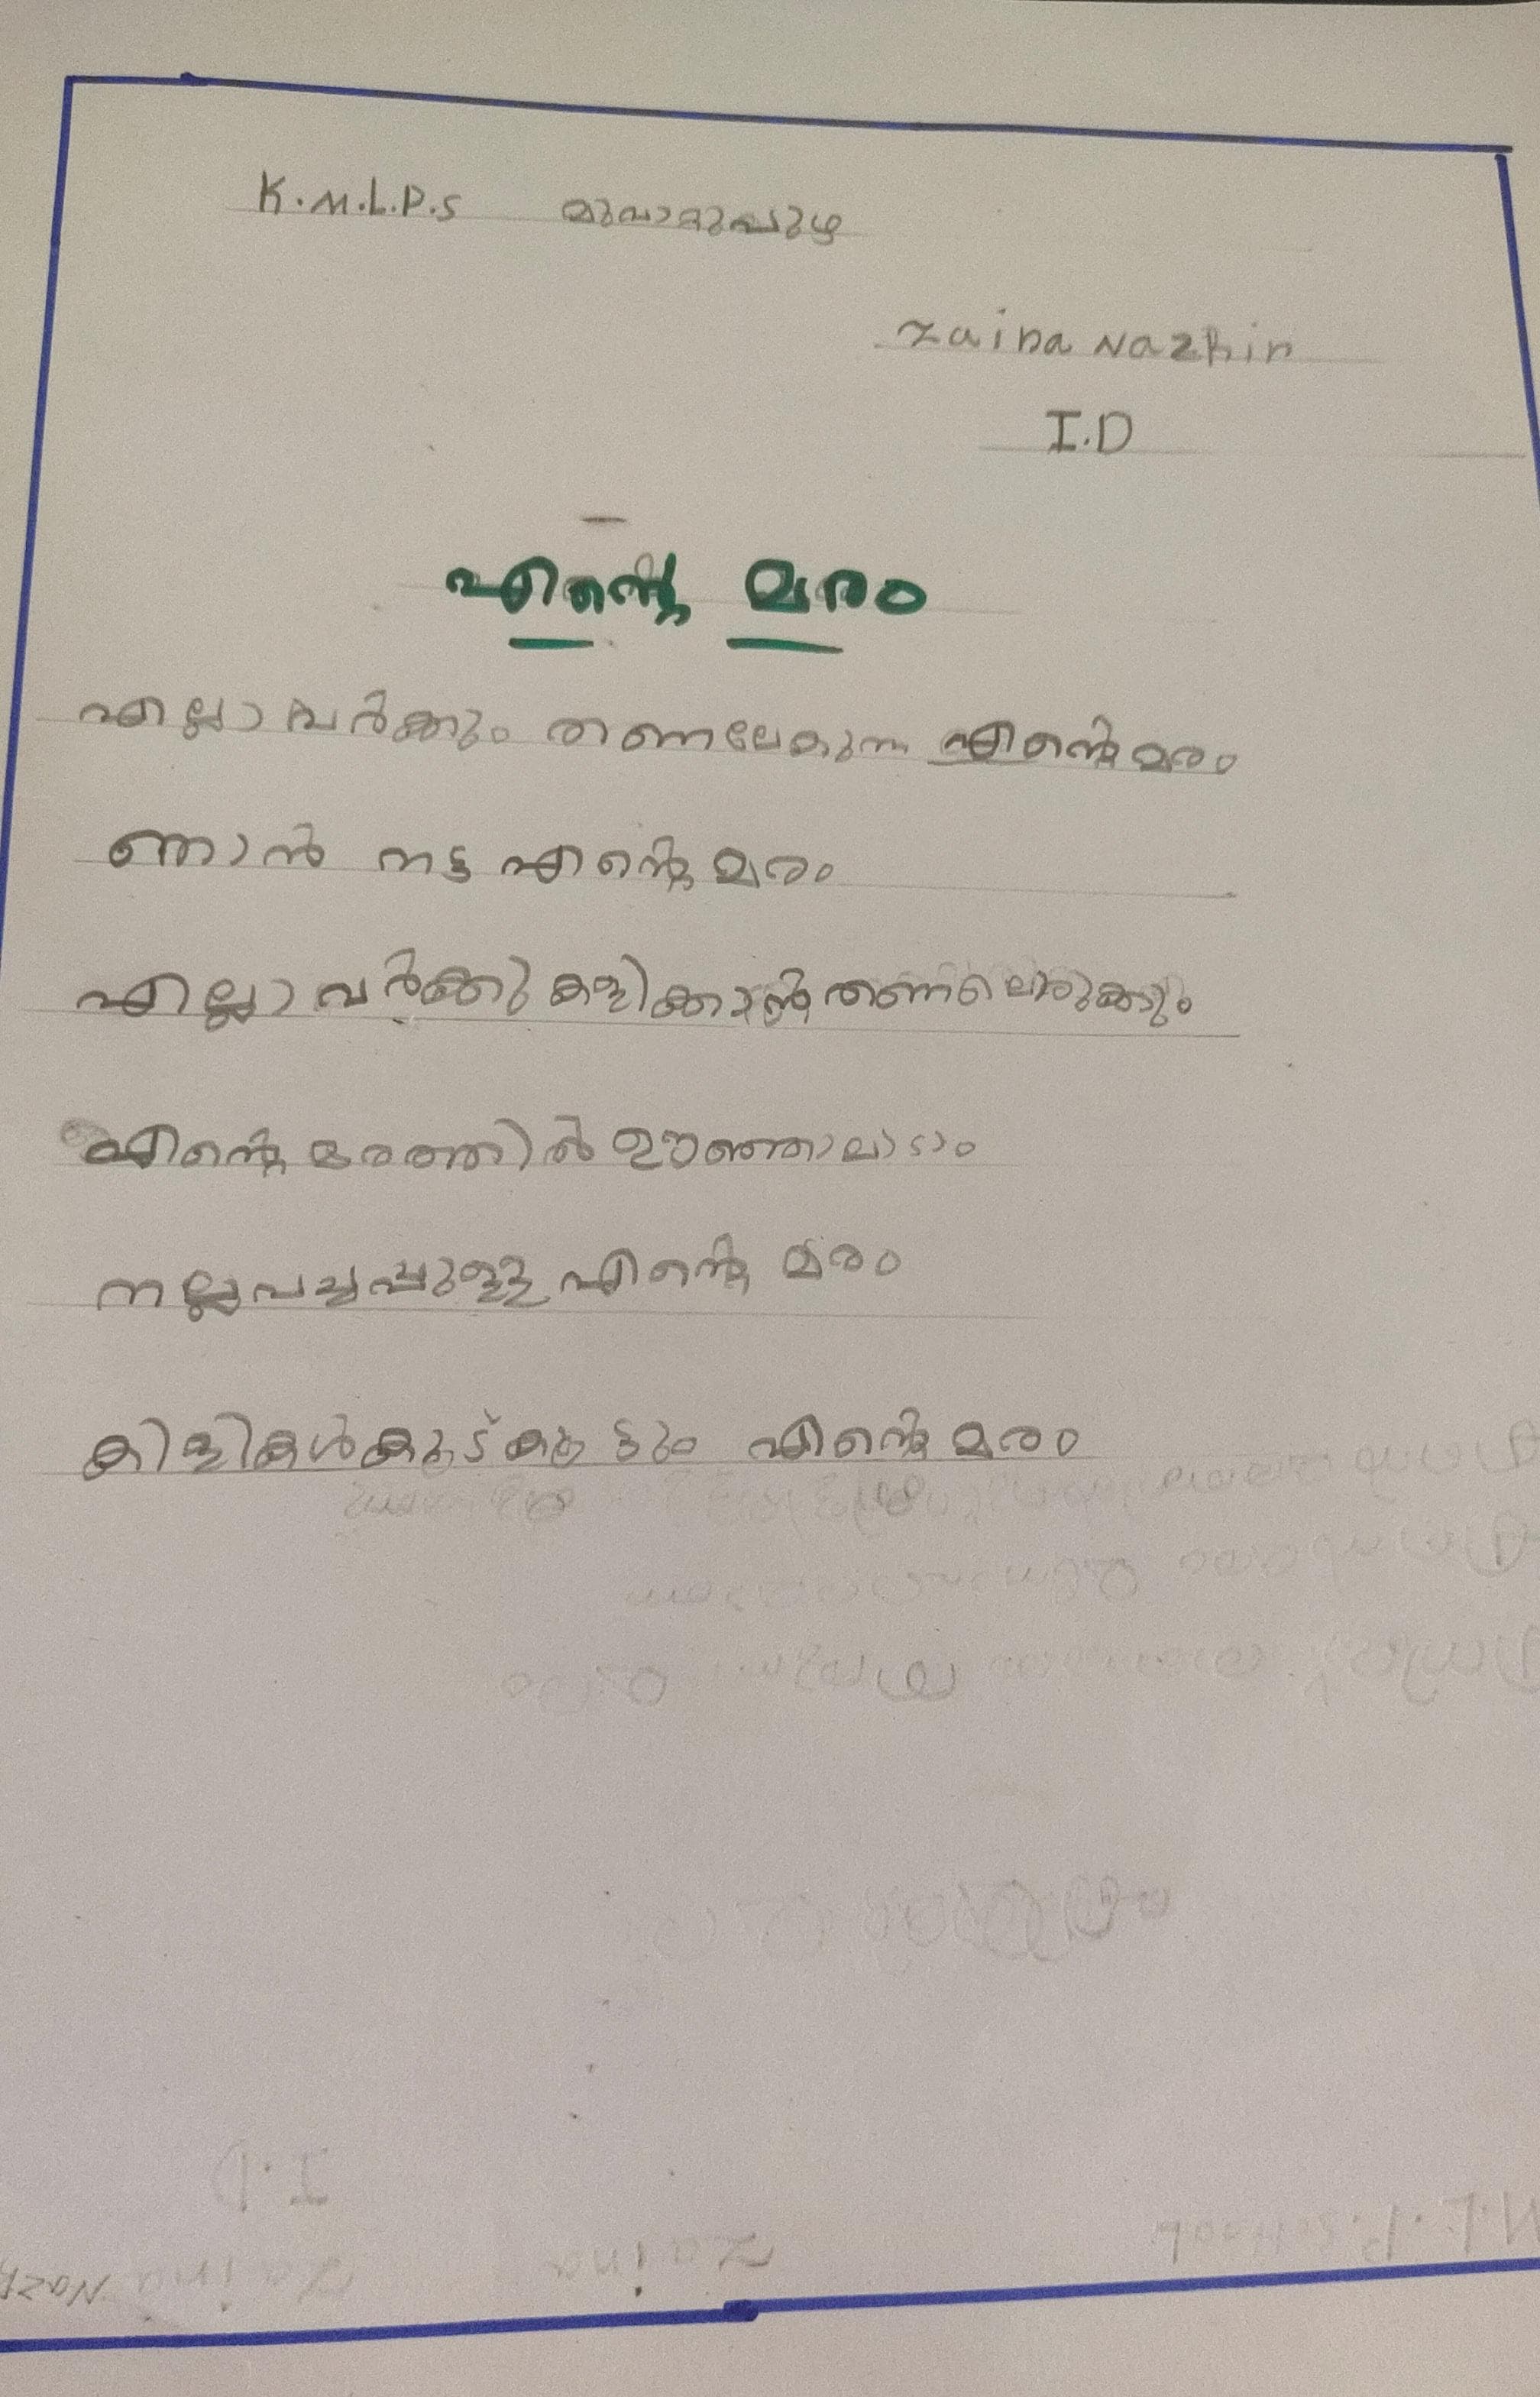 K.M.L.P.S മുവാറ്റുപുഴ
Zaina Nazhin
I.D
എന്റെ മരം
എല്ലാവർക്കും തണലേകുന്ന എന്റെ മരം
ഞാൻ നട്ട എന്റെ മരം
എല്ലാവർക്കു കളിക്കാൻ തണലൊരുക്കും
എന്റെ മരത്തിൽ ഊഞ്ഞാലാടാം
നല്ല പച്ചപ്പുള്ള എന്റെ മരം
കിളികൾ കൂട് കൂട്ടും എന്റെ മരം